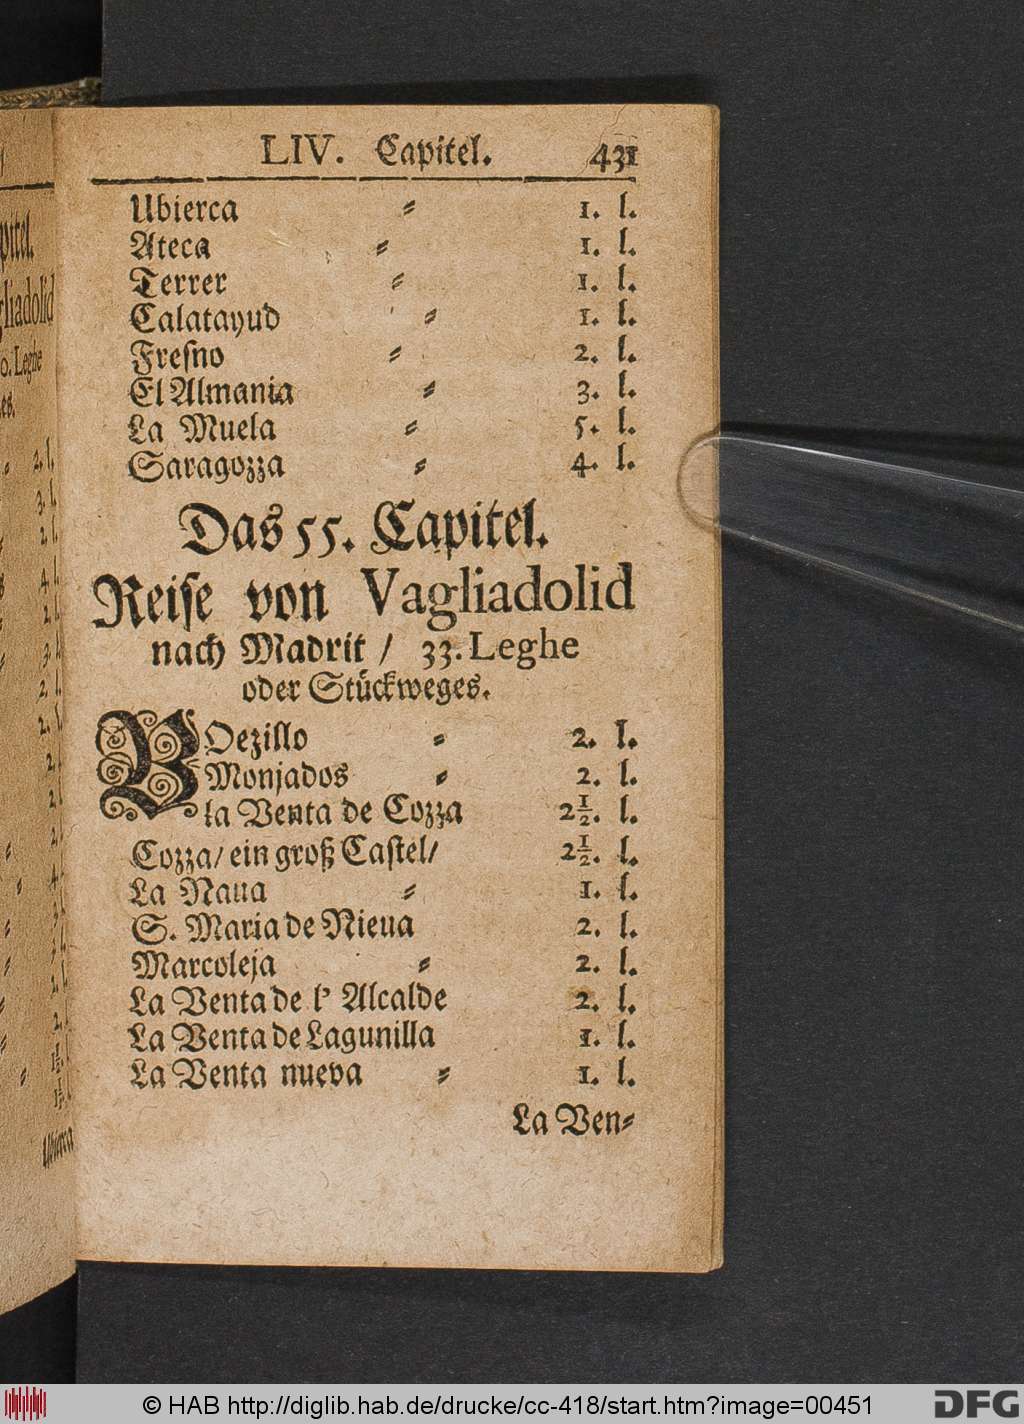 LIV. Capitel. 431
Ubierca ⸗ 1. l.
Ateca ⸗ 1. l.
Terrer ⸗ 1. l.
Calatayud ⸗ 1. l.
Fresno ⸗ 2. l.
El Almania ⸗ 3. l.
La Muela ⸗ 5. l.
Saragozza ⸗ 4. l.
Das 55. Capitel.
Reise von Vagliadolid
nach Madrit / 33. Leghe
oder Stückweges.
BOezillo ⸗ 2. l.
Monjados ⸗ 2. l.
la Venta de Cozza 2½. l.
Cozza/ ein groß Castel/ 2½. l.
La Naua ⸗ 1. l.
S. Maria de Nieua 2. l.
Marcoleja ⸗ 2. l.
La Venta de l' Alcalde 2. l.
La Venta de Lagunilla 1. l.
La Venta nueva ⸗ 1. l.
La Ven⸗
© HAB http://diglib.hab.de/drucke/cc-418/start.htm?image=00451
DFG